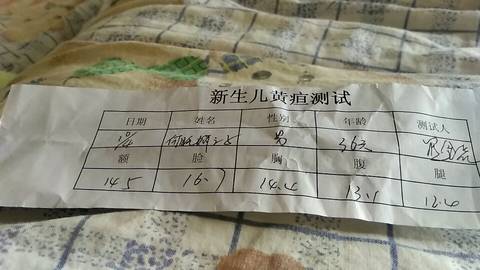 新生儿黄疸测试
日期 姓名 性别 年龄 测试人
之子 男 36天
额 脸 胸 腹 腿
14.5 16.7 14.4 13.1 12.4